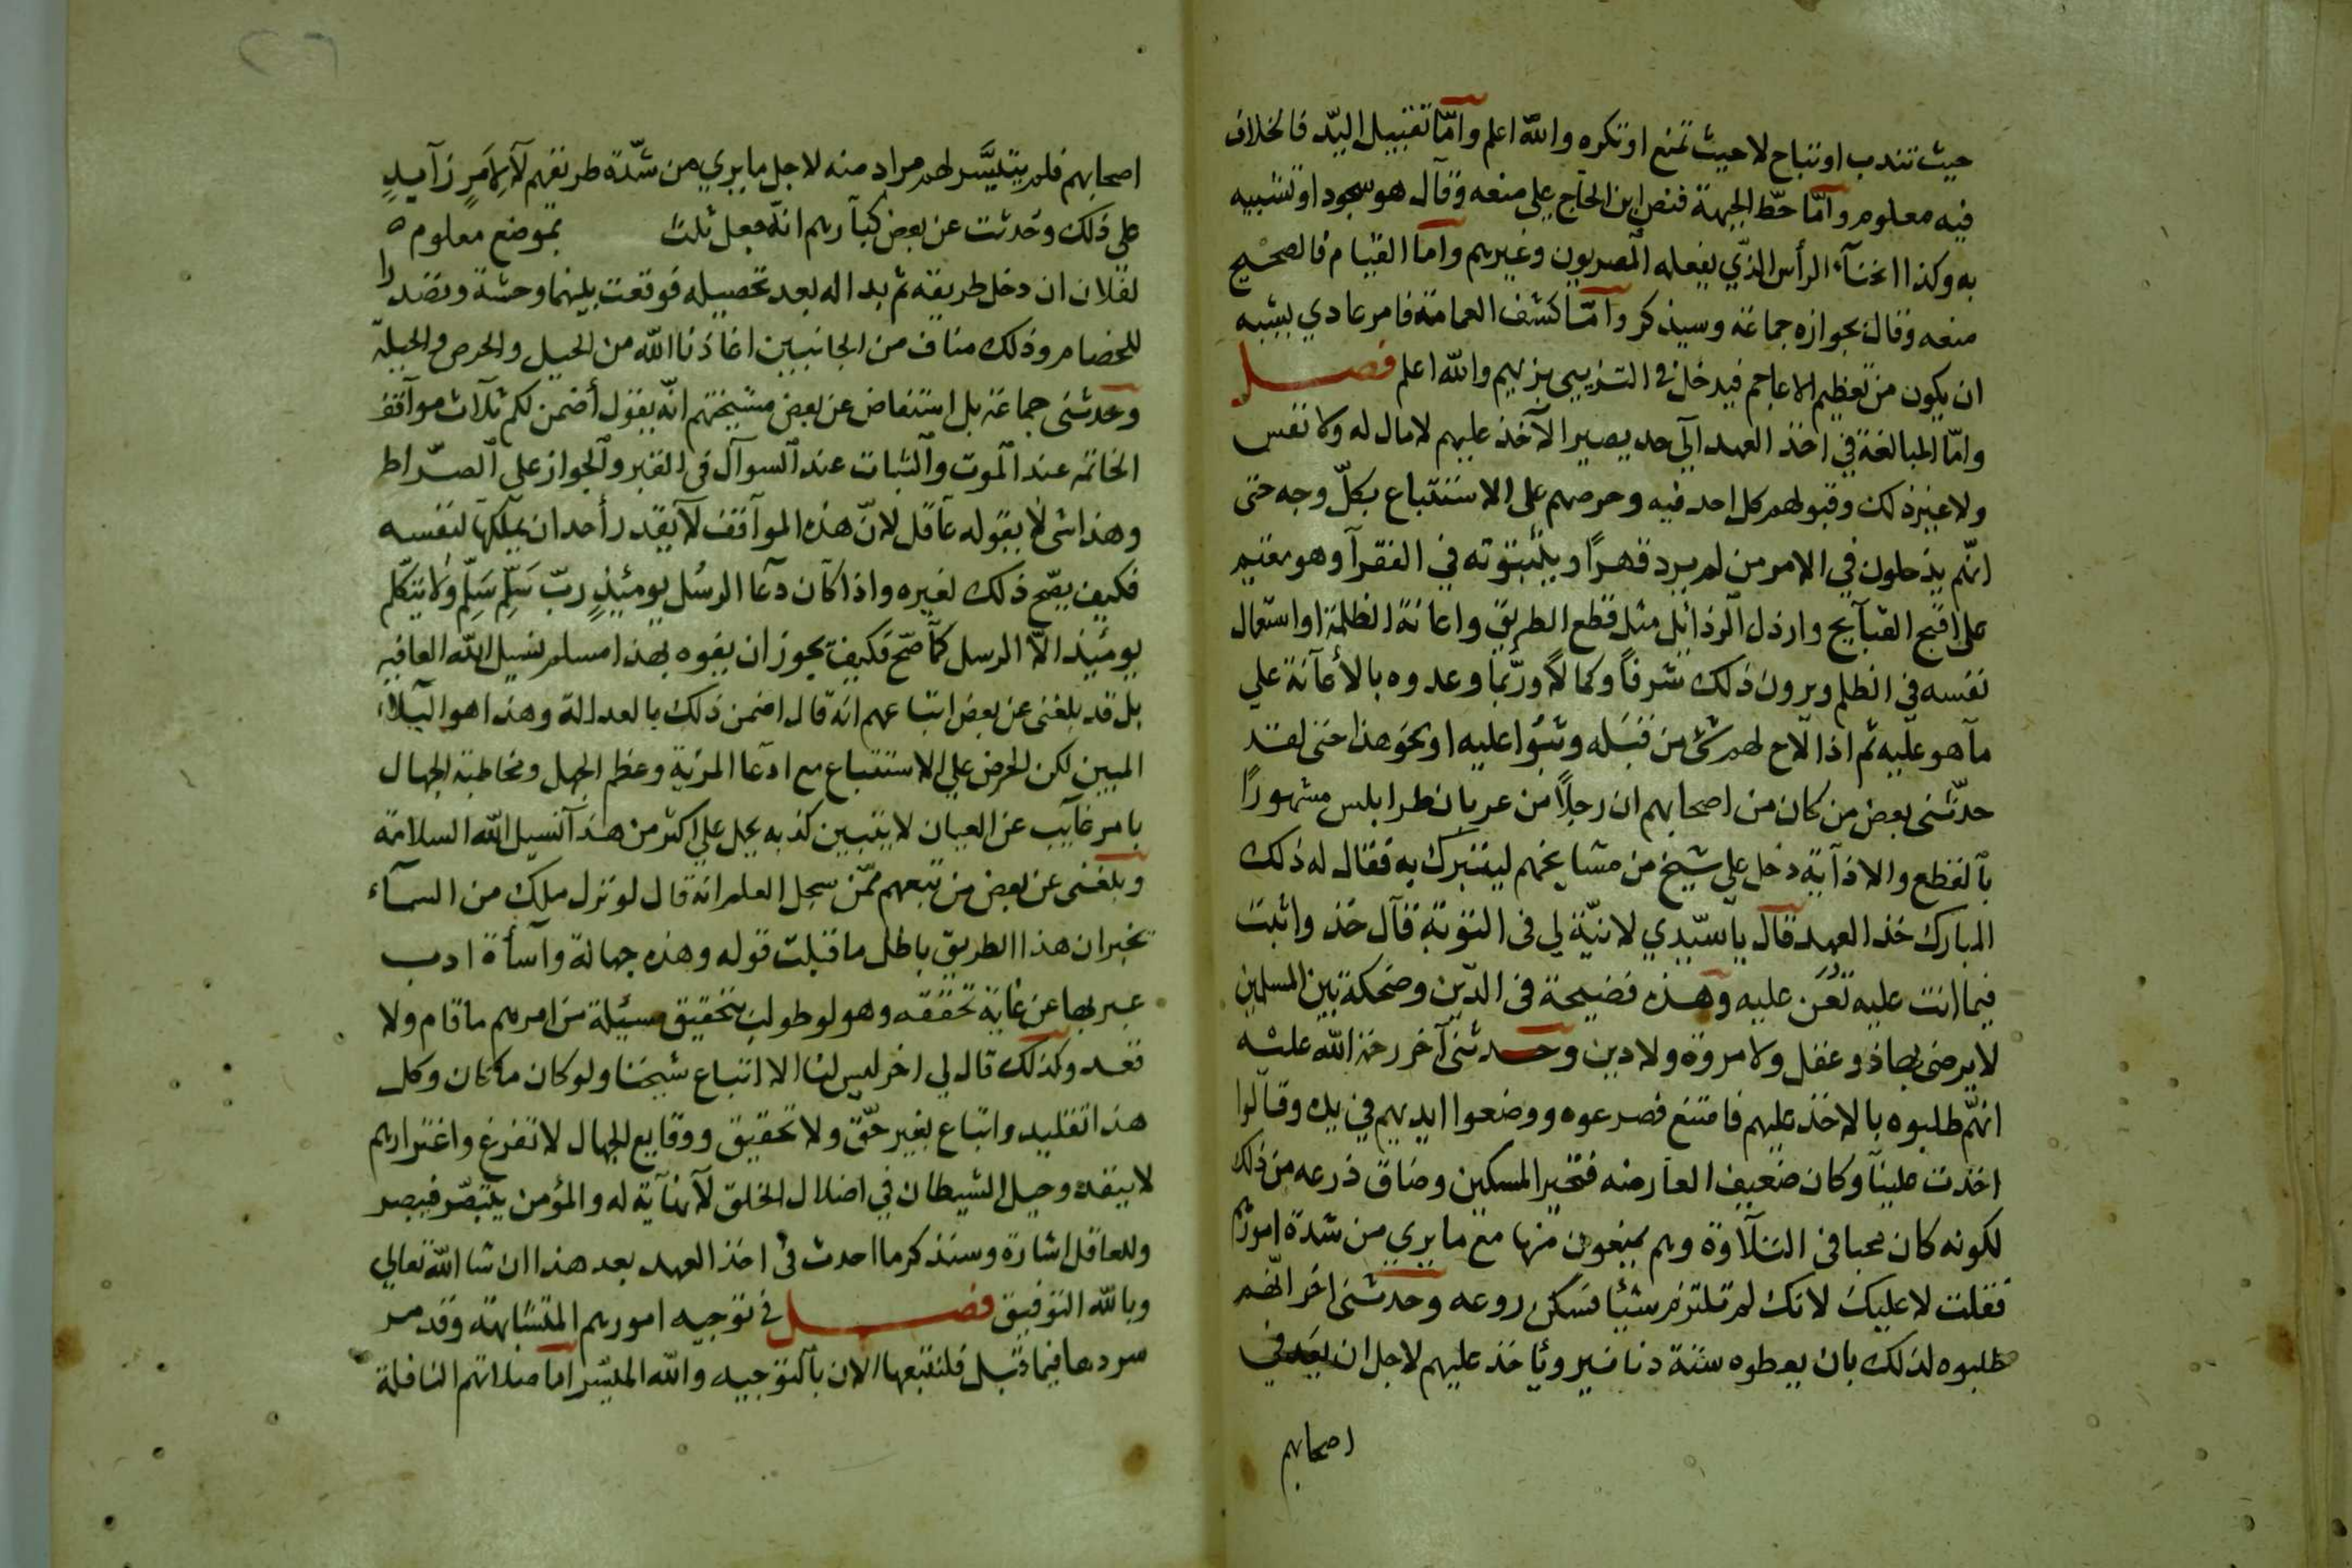 حيث تندب او تباح لا حيث تمنع او تكره والله اعلم وامّا تقبيل اليد فالخلاف
فيه معلوم وامّا حطّ الجبهة فنص ابن الحاج على منعه وقال هو سجود او تشبيه
به وكذا انحنآء الرأس الذي يفعله المصريون وغيرهم واما القيام فالصحيح
منعه وقال بجوازه جماعة وسيذكر وامّا كشف العمامة فامر عادي يشبه
ان يكون من تعظيم الاعاجم فيدخل في التزيي بزيهم والله اعلم فصل
وامّا المبالغة في اخذ العهد الى حد يصير الآخذ عليهم لا مال له ولا نفس
ولا غير ذلك وقبولهم كل احد فيه وحرصهم على الاستتباع بكلّ وجه حتى
انهم يدخلون في الامر من لم يرد قهرًا ويثبتوته في الفقرآ وهو مقيم
على اقبح القبآيح وارذل الرذآئل مثل قطع الطريق واعانة الظلمة او استعمال
نفسه في الظلم ويرون ذلك شرفًا وكمالًا وربّما وعدوه بالأعآنة على
مآ هو عليه ثم اذا لاح لهم شئ من قبله وثبوا عليه او نحو هذا حتى لقد
حدّثنى بعض من كان من اصحابهم ان رجلًا من عربان طرابلس مشهورًا
بالقطع والاذآية دخل على شيخ من مشايخهم ليتبرك به فقال له ذلك
المبارك خذ العهد قال يا سيّدي لا نيّة لي في التوبة قآل خذ واثبت
فيما انت عليه تُعَن عليه وهذه فضيحة في الدّين وضحكة بين المسلمين
لا يرضى بها ذو عقل ولا مروة ولا دين وحدثنى آخر رحمة الله عليه
انهم طلبوه بالاخذ عليهم فامتنع فصرعوه ووضعوا ايديهم في يده وقالوا
اخذت علينآ وكان ضعيف العارضه فتحير المسكين وضاق ذرعه من ذلك
لكونه كان محبا في التلآوة وهم يمنعون منها مع ما يري من شدة امورهم
فقلت لا عليك لانك لم تلتزم شيئا فسكن روعه وحدثنى اخر انّهم
طلبوه لذلك بان يعطوه ستة دنانير ويأخذ عليهم لاجل ان يعد في
اصحابهم
اصحابهم فلم يتيسَّر لهم مراد منه لاجل ما يري من شدّة طريقهم لآ لِأَمرٍ زآيدٍ
على ذلك وحُدثت عن بعض كبآرهم انه جعل ثلث بموضع معلوم ه
لفلان ان دخل طريقه ثم بدا له بعد تحصيله فوقعت بينهما وحشة وتصدرا
للخصام وذلك مناف من الجانبين اعاذنا الله من الحيل والحرص والحيلة
وحدثنى جماعة بل استفاض عن بعض مشيختهم انّه يقول أضمن لكم ثلآث موآقف
الخاتمه عند الموت والثبات عند السوآل في القبر والجواز على الصّراط
وهذا شئ لا يقوله عآقل لانّ هذه الموآقف لآ يقدر أحد ان يملكها لنفسه
فكيف يصّح ذلك لغيره واذا كآن دعآ الرسُل يومئِذٍ ربّ سَلِّم سَلِّم ولا يتكلّم
يومئِذ الّا الرسل كما صّح فكيف يجوز ان يفوه بهذا مسلم نسيل الله العافيه
بل قد بلغنى عن بعض اتباعهم انه قال اضمن ذلك بالعدالة وهذا هو البلآء
المبين لكن الحرص على الاستتباع مع ادعآ المزية وعظم الجهل ومخاطبة الجهال
بامر غآيب عن العيان لا يتبين كذبه يحمل على اكثر من هذآ نسيل الله السلامة
وبلغنى عن بعض من تبعهم ممّن سجل العلم انه قال لو نزل ملك من السمآء
يخبر ان هذا الطريق باطل ما قبلت قوله وهذه جهالة وآسأة ادب
عبر بها عن غاية تحققه وهو لو طولب بتحقيق مسيئلة من امرهم ما قام ولا
قعد وكذلك قال لي اخر ليس لنا الا اتباع شيخنا ولو كان ما كان وكل
هذا تقليد واتباع بغير حّق ولا تحقيق ووقايع الجهال لا تفرغ واغترارهم
لا ينفد وحيل الشيطان في اضلال الخلق لآ نهآية له والمؤمن يتبصّر فيبصر
وللعاقل اشارة وسنذكر ما احدث في اخذ العهد بعد هذا ان شا الله تعالى
وبالله التوفيق فصل في توجيه امورهم المتشابهة وقد مر
سردها فيما قبل فلنتبعها الان بالتوجيه والله الميسّر اما صلاتهم النافلة